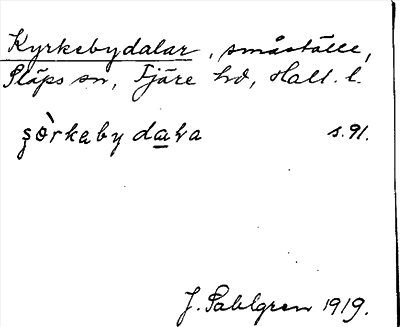 Kyrkebydalar, småställe,
Släps sn, Fjäre hd, Hall. l.
şòrkaby daḷa s. 91.
J. Sahlgren 1919.